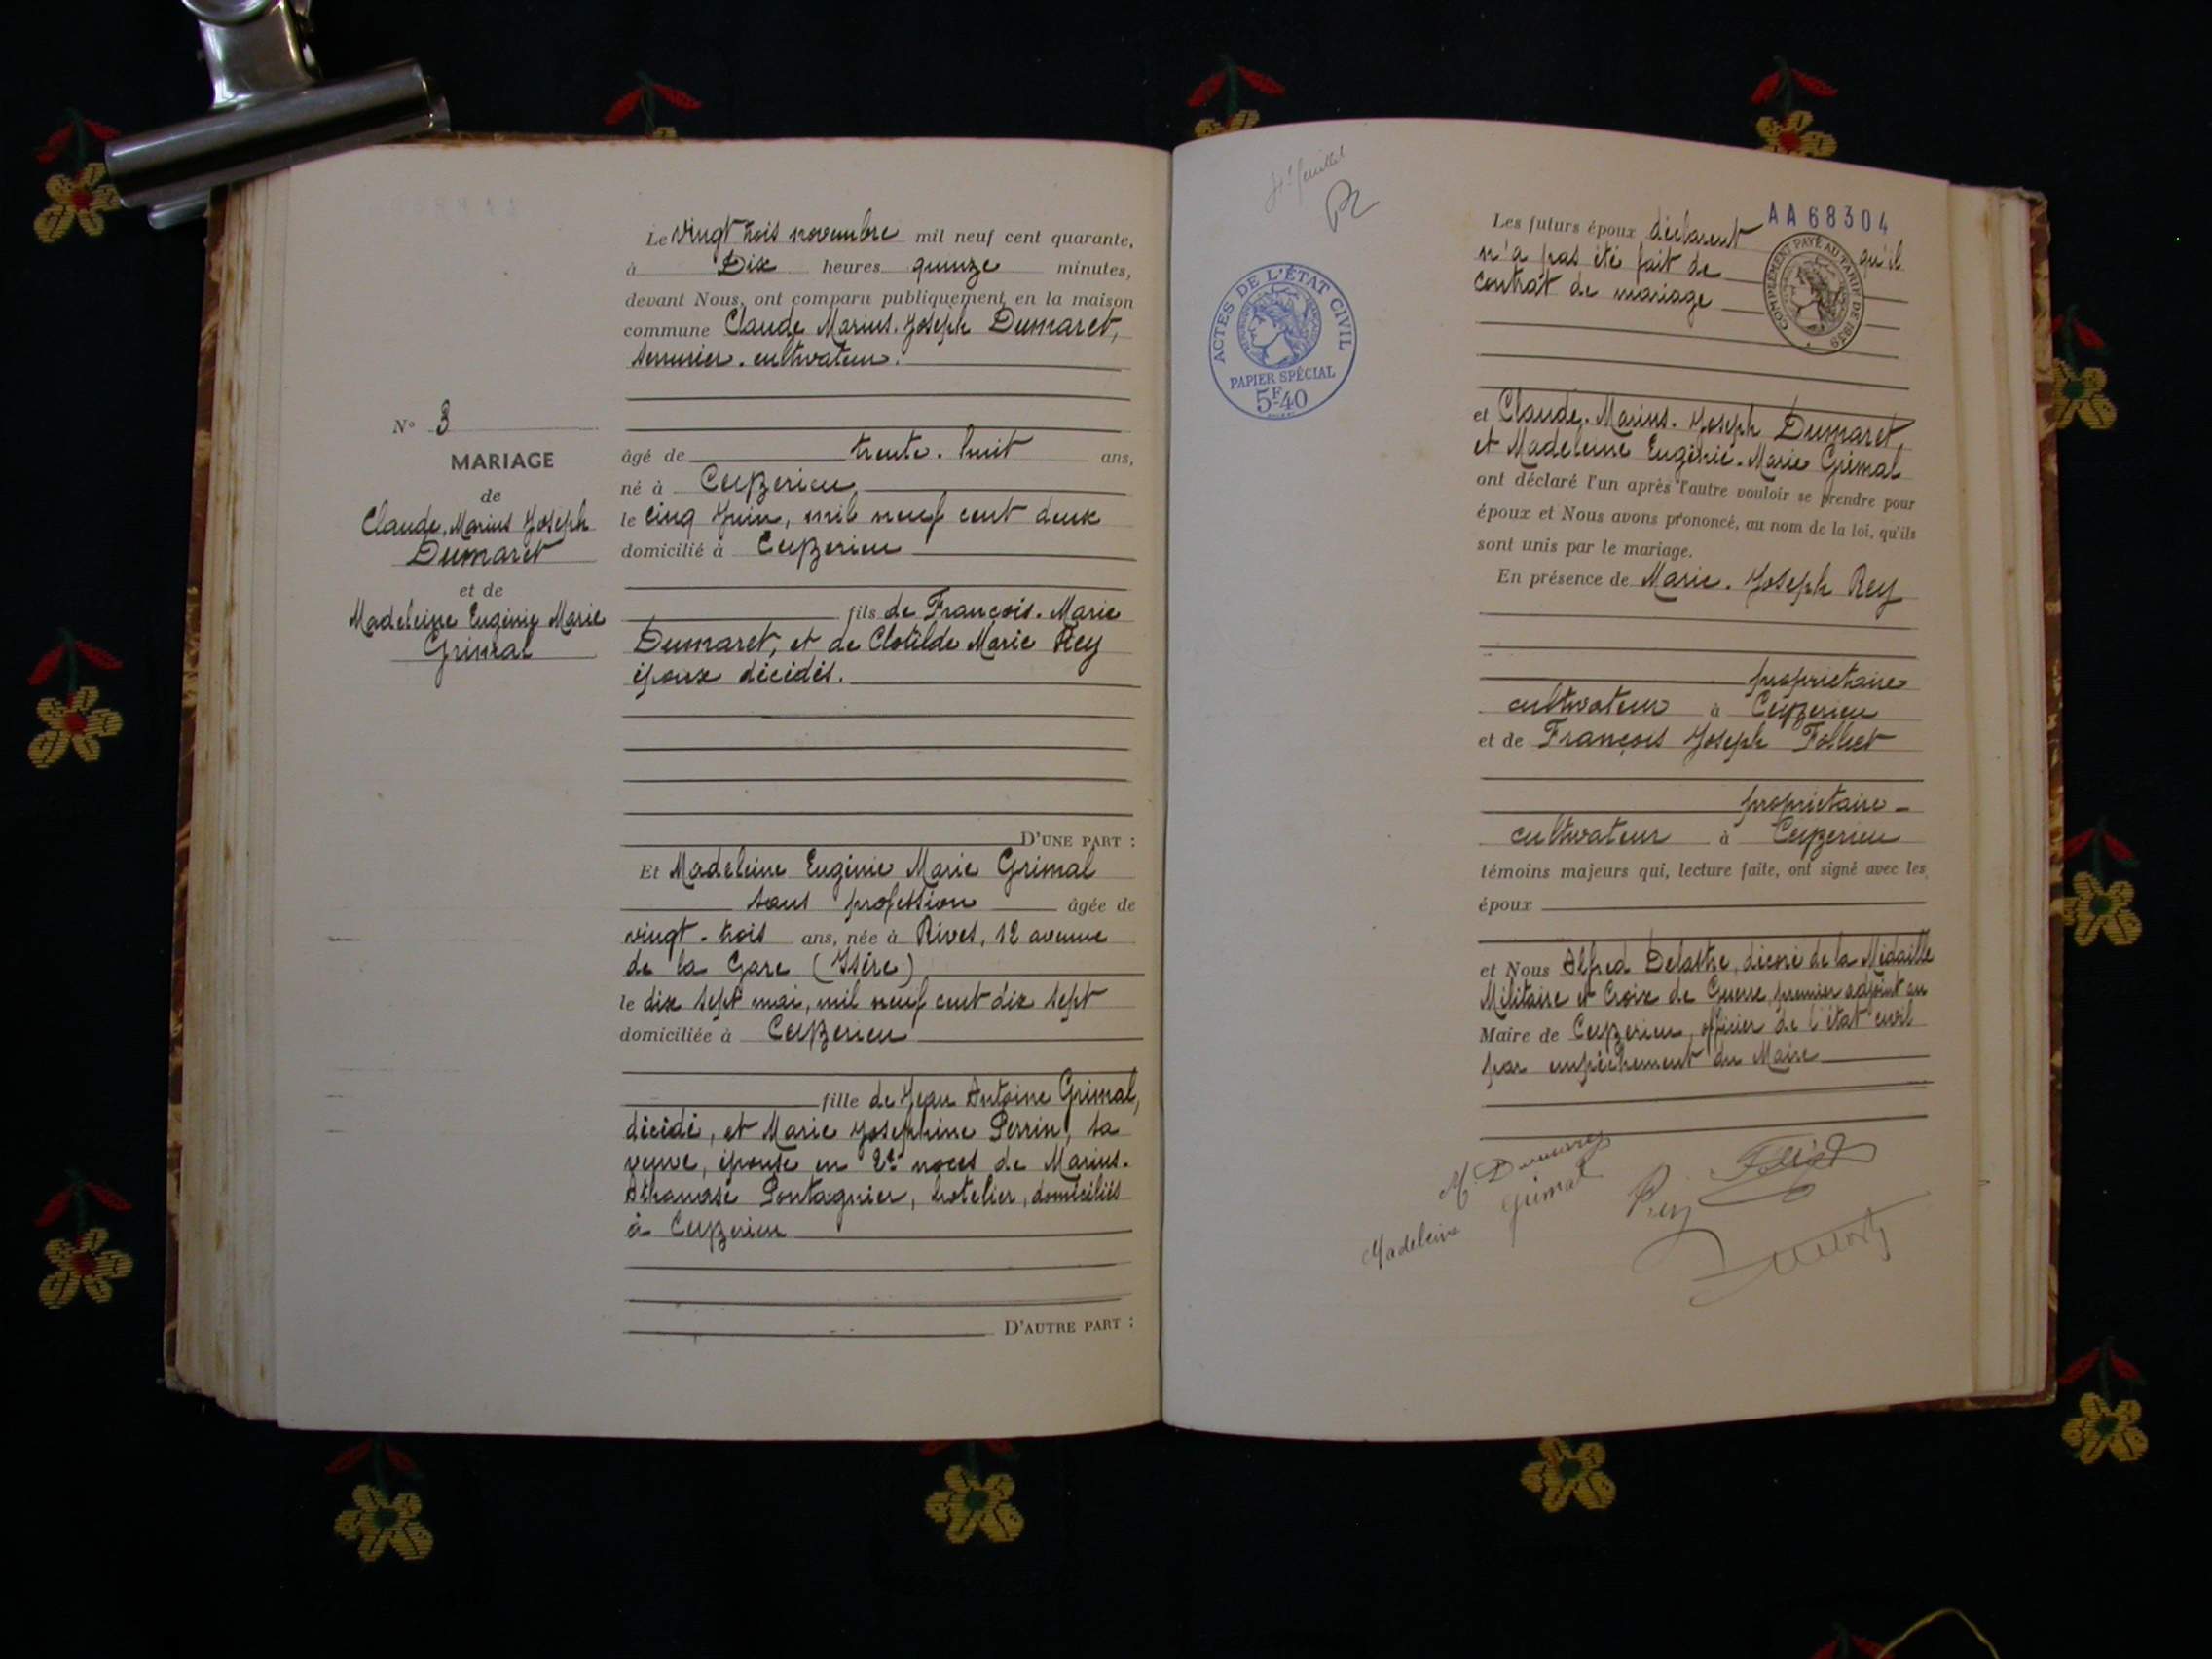 N° 3
MARIAGE
de
Claude, Marius Joseph
Dumaret
et de
Madeleine Eugénie Marie
Grimal
Le vingt trois novembre mil neuf cent quarante,
à Dix heures quinze minutes,
devant Nous, ont comparu publiquement en la maison
commune Claude Marius. Joseph Dumaret,
serrurier. cultivateur.
âgé de trente. huit ans,
né à Ceyzerieu
le cinq Juin, mil neuf cent deux
domicilié à Ceyzerieu
fils de François. Marie
Dumaret, et de Clotilde Marie Rey
époux décédés.
D'UNE PART :
Et Madeleine Eugénie Marie Grimal
sans profession âgée de
vingt-trois ans, née à Rives, 12 avenue
de la Gare (Isère)
le dix sept mai, mil neuf cent dix sept
domiciliée à Ceyzerieu
fille de Jean Antoine Grimal,
décédé, et Marie Josephine Perrin, sa
veuve, épouse en 2es noces de Marius.
Athanase Pontagnier, hotelier, domiciliés
à Ceyzerieu
D'AUTRE PART :
AA 68304
ACTES DE L'ÉTAT CIVIL
PAPIER SPÉCIAL
5F-40
COMPLÉMENT PAYÉ AU TARIF DE 1939
Les futurs époux déclarent qu'il
n'a pas été fait de
contrat de mariage
et Claude. Marius. Joseph Dumaret,
et Madeleine Eugénie. Marie Grimal
ont déclaré l'un après l'autre vouloir se prendre pour
époux et Nous avons prononcé, au nom de la loi, qu'ils
sont unis par le mariage.
En présence de Marie. Joseph Rey
propriétaire
cultivateur à Ceyzerieu
et de François Joseph Folliet
propriétaire-
cultivateur à Ceyzerieu
témoins majeurs qui, lecture faite, ont signé avec les
époux
et Nous Alfred Delastre, décoré de la Médaille
Militaire et Croix de Guerre, premier adjoint au
Maire de Ceyzerieu, officier de l'état civil
par empêchement du Maire
M. Dumaret
Madeleine Grimal
Rey